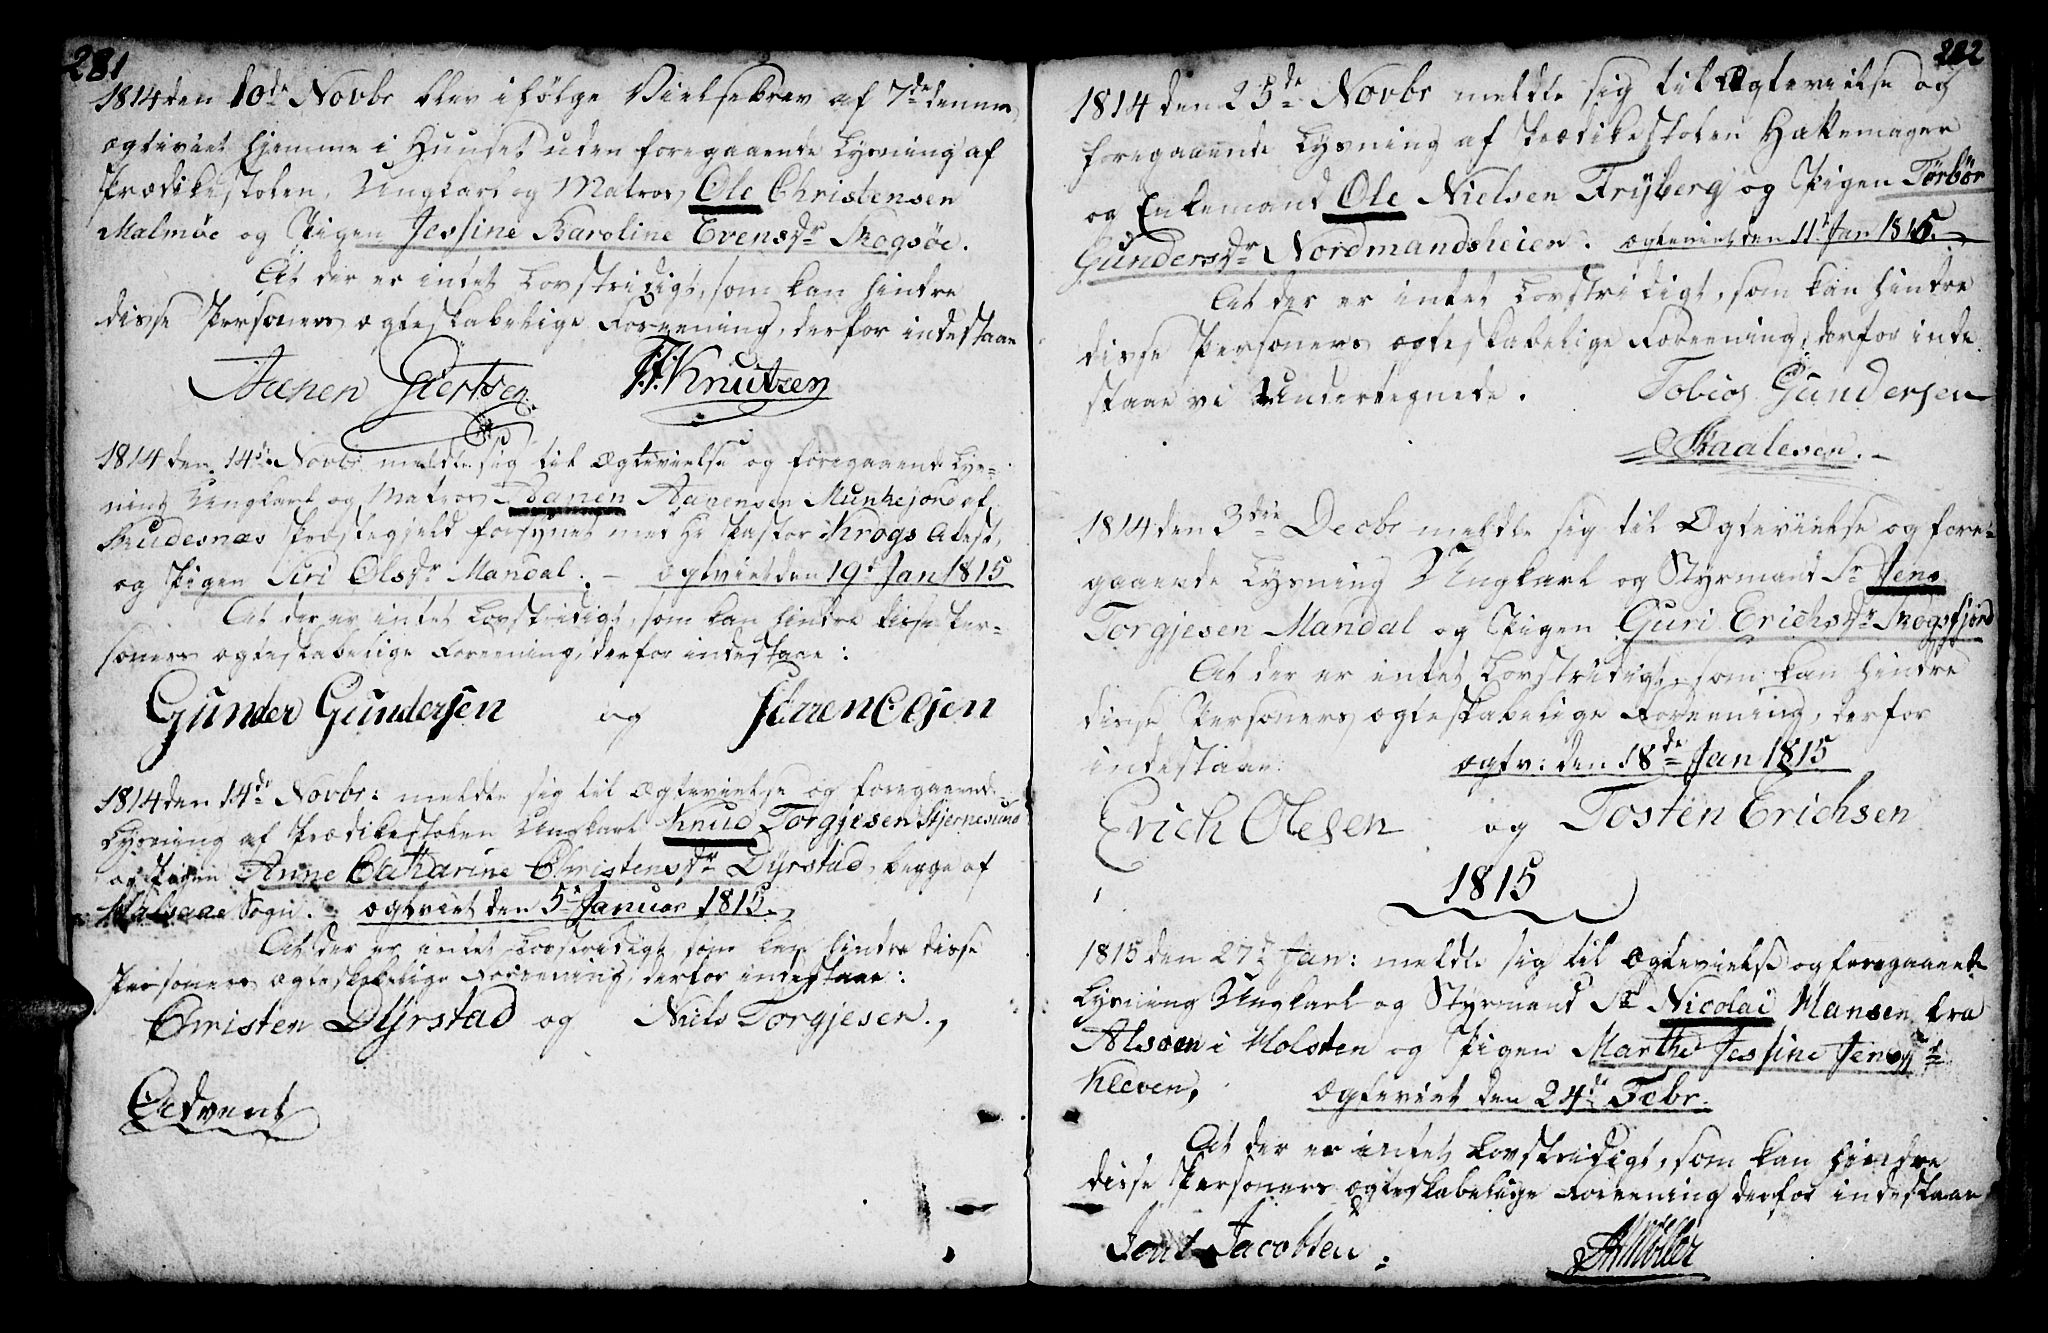 281
1814 den 10de Novbr blev ifølge Vielsebrev af 7de denne
ægteviet hjemme i Huuset uden foregaaende Lysning af
Prædikestolen, Ungkarl og Matros Ole Christensen
Malmöe og Pigen Jessine Karoline Evensdr Skogsöe.
At der er intet Lovstridigt, som kan hindre
disse Personers ægteskabelige Foreening, derfor indestaae
Aanen Giertsen F. Knutzen
1814 den 14de Novbr meldte sig til Ægtevielse og foregaaende Lys-
ning Ungkarl og Matros Aanen Aanensen Munkejord af
Budesnæs Præstegjeld forsynet med Hr Pastor Krogs Atest,
og Pigen Siri Olsdr Mandal. – ægtviet den 19d Jan 1815
At der er intet Lovstridigt, som kan hindre disse Per-
soners ægteskabelige Foreening, derfor indestaae:
Gunder Gundersen og Sörren Olsen
1814 den 14de Novbr: meldte sig til Ægtevielse og foregaaende
Lysning af Prædikestolen Ungkarl Knud Torgjesen Skjernesund
og Pigen Anne Catharine Christensdr Dyrstad, begge af
Halsaae Sogn. – ægtviet den 5d Januar 1815.
At der er intet Lovstridigt, som kan hindre disse
Personers ægteskabelige Foreening, derfor indestaae:
Christen Dyrstad og Niels Torgjesen.
Advent
282
1814 den 25de Novbr meldte sig til Ægtevielse og
foregaaende Lysning af Prædikestolen Hattemager
og Enkemand Ole Nielsen Fryberg og Pigen Törbör
Gundersdr Nordmandsheien. ægteviet den 11t Jan 1815.
At der er intet Lovstridigt, som kan hindre
disse Personers ægteskabelige Foreening, derfor inde
staae vi Undertegnede. Tobias Gundersen
Skaalesen.
1814 den 3die Decbr meldte sig til Ægtevielse og fore-
gaaende Lysning Ungkarl og Styrmand Sr Jens
Torgjesen Mandal og Pigen Guri Erichsdr Skogsfjord
At der er intet Lovstridigt, som kan hindre
disse Personers ægteskabelige Foreening, derfor
indestaae: ægtv: den 18de Jan 1815
Erich Olesen og Tosten Erichsen
1815
1815 den 27d Jan: meldte sig til Ægtevielse og foregaaende
Lysning Ungkarl og Styrmand Sr Nicolai Hansen fra
Alsøen i Holsten og Pigen Marthe Jessine Jensdr
Kleven, ægteviet den 24de Febr.
At der er intet Lovstridigt, som kan hindre
disse Personers ægteskabelige Foreening derfor indestaae
Jacobsen. Möller